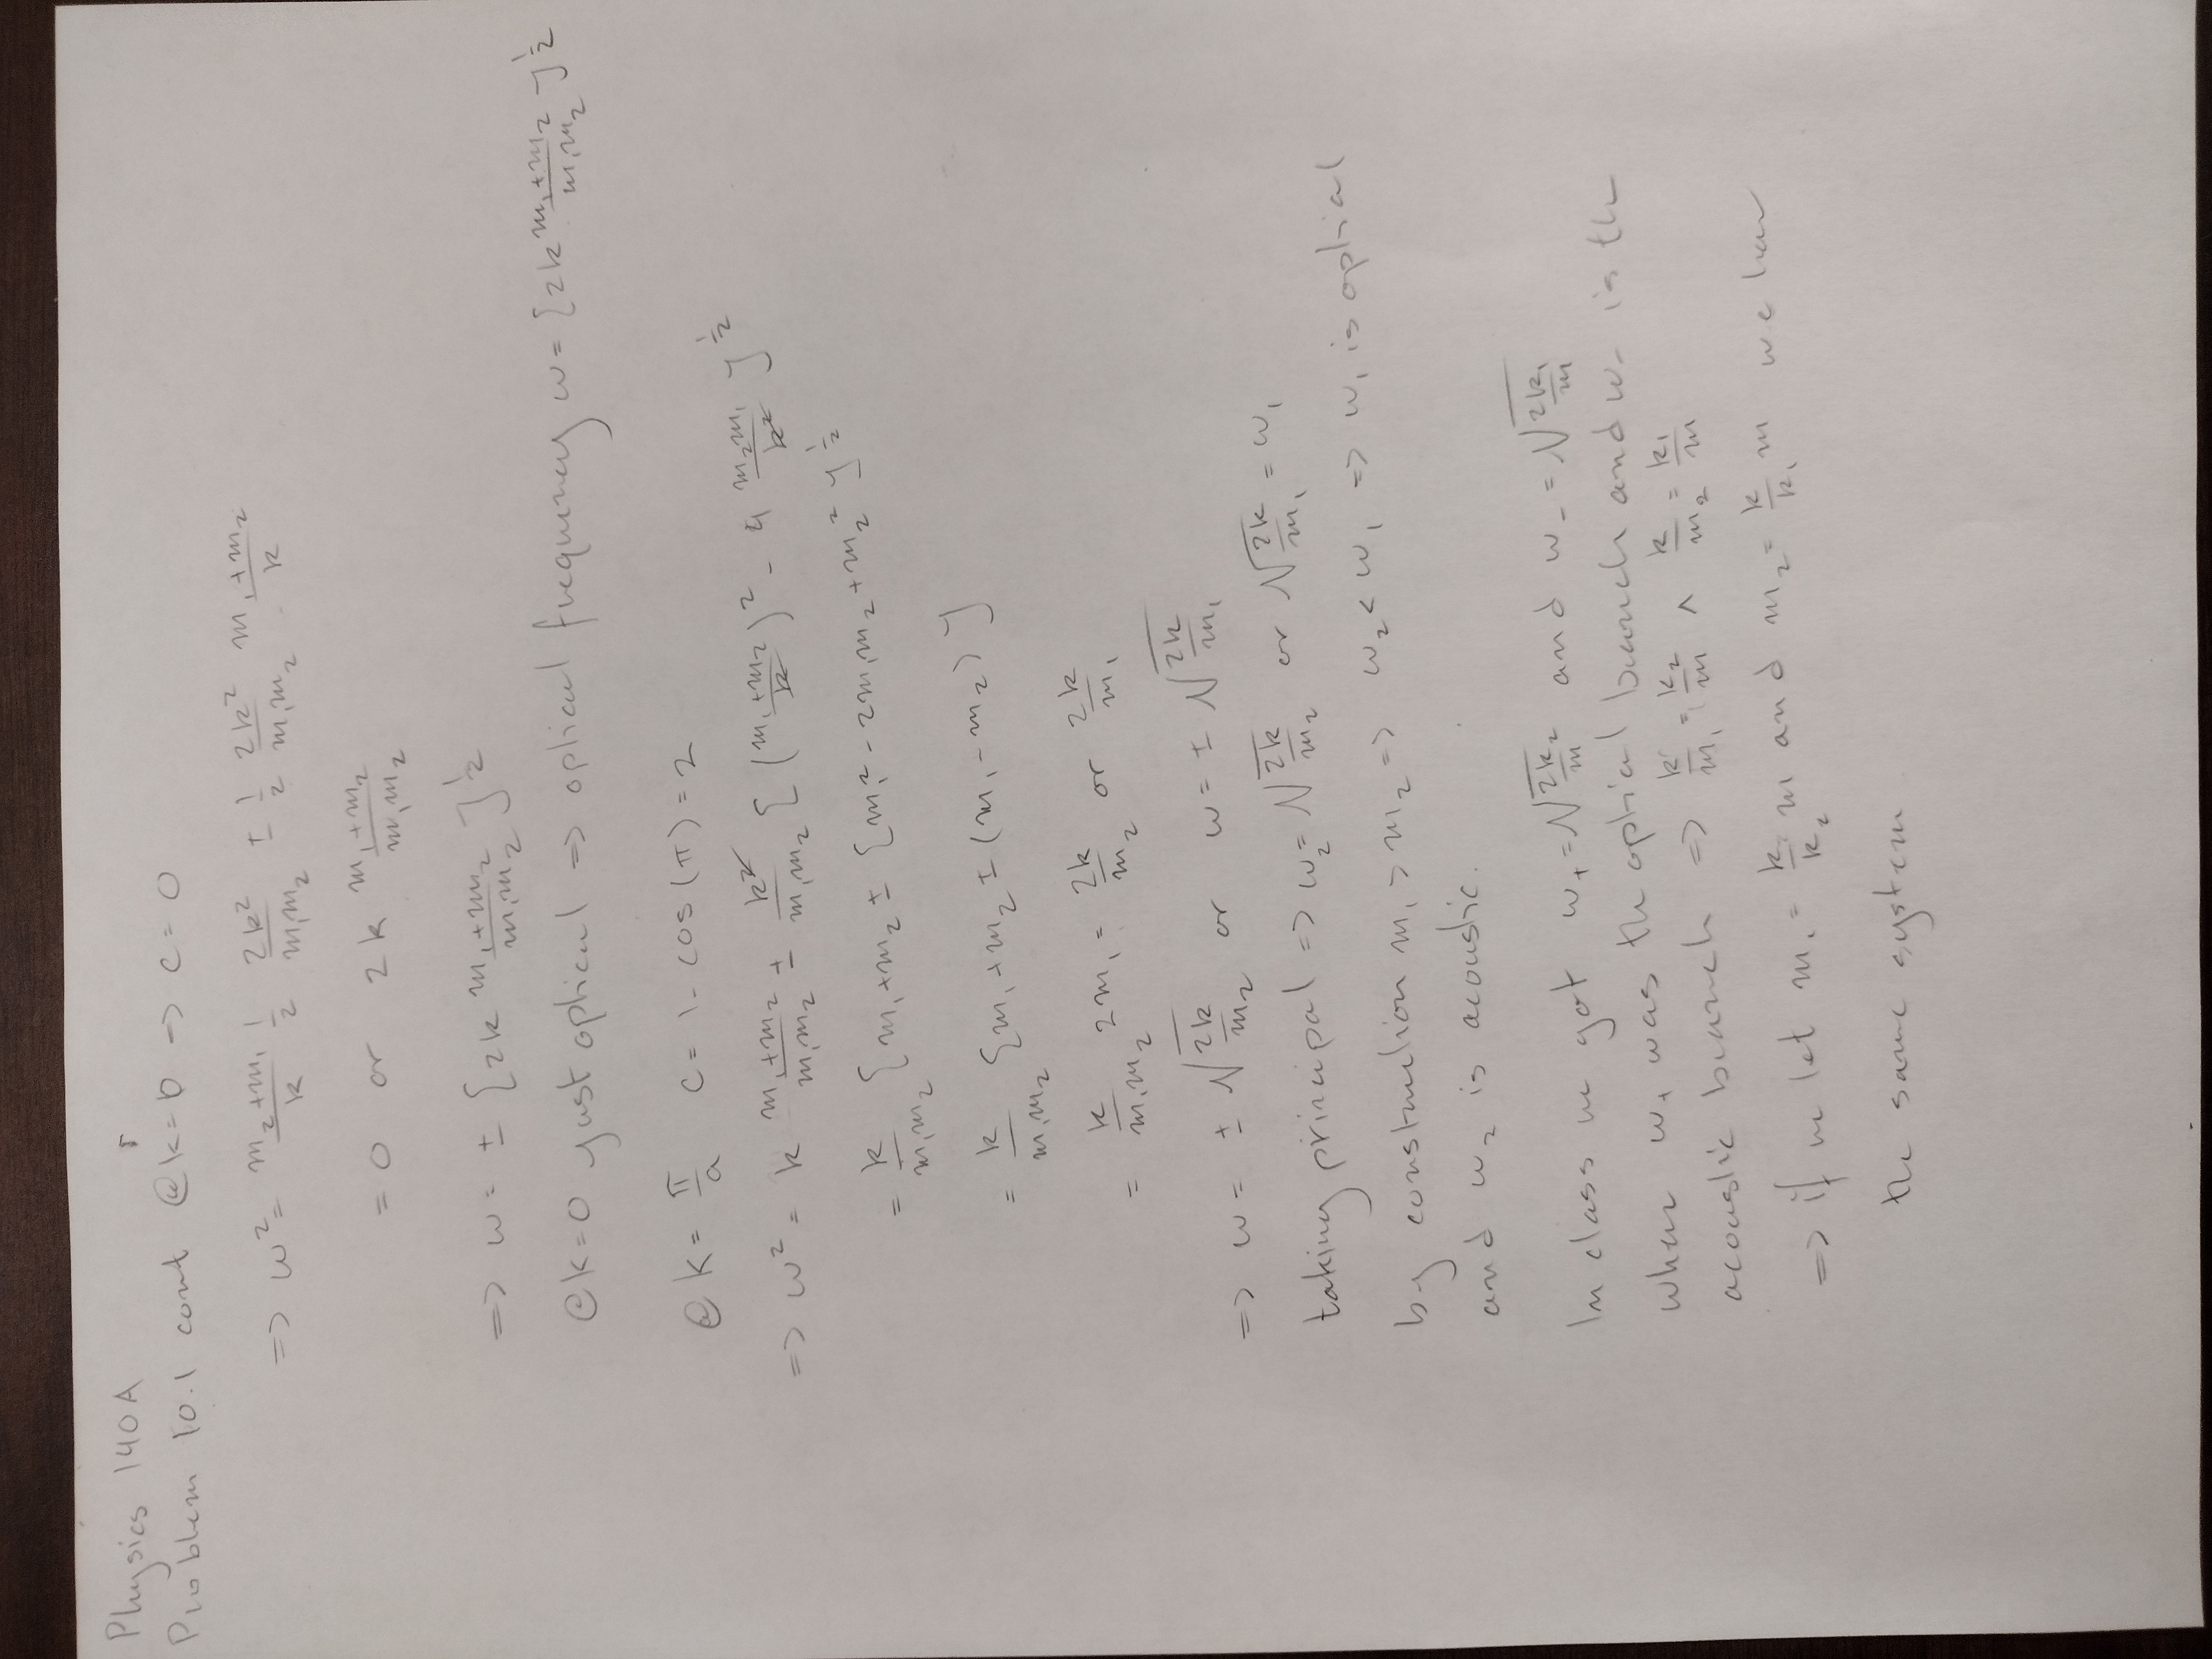 Physics 140A
Problem 10.1 cont @k=0 => c=0
=> ω² = (m₂+m₁)/k 1/2 2k²/(m₁m₂) ± 1/2 2k²/(m₁m₂) (m₁+m₂)/k
= 0 or 2k (m₁+m₂)/(m₁m₂)
=> ω = ± {2k (m₁+m₂)/(m₁m₂)}^½
@k=0 just optical => optical frequency ω = {2k (m₁+m₂)/(m₁m₂)}^½
@k = π/a c = 1 - cos(π) = 2
=> ω² = k (m₁+m₂)/(m₁m₂) ± k²/(m₁m₂) {((m₁+m₂)/k)² - 4 m₂m₁/k²}^½
= k/(m₁m₂) {m₁+m₂ ± {m₁² - 2m₁m₂ + m₂²}^½
= k/(m₁m₂) {m₁+m₂ ± (m₁-m₂)}
= k/(m₁m₂) 2m₁ = 2k/m₂ or 2k/m₁
=> ω = ± √(2k/m₂) or ω = ± √(2k/m₁)
taking principal => ω₂ = √(2k/m₂) or √(2k/m₁) = ω₁
by construction m₁ > m₂ => ω₂ < ω₁ => ω₁ is optical
and ω₂ is acoustic.
In class we got ω₊ = √(2k₂/m) and ω₋ = √(2k₁/m)
where ω₊ was the optical branch and ω₋ is the
acoustic branch => k/m₁ = k₂/m ∧ k/m₂ = k₁/m
=> if we let m₁ = k/k₂ m and m₂ = k/k₁ m we have
the same system